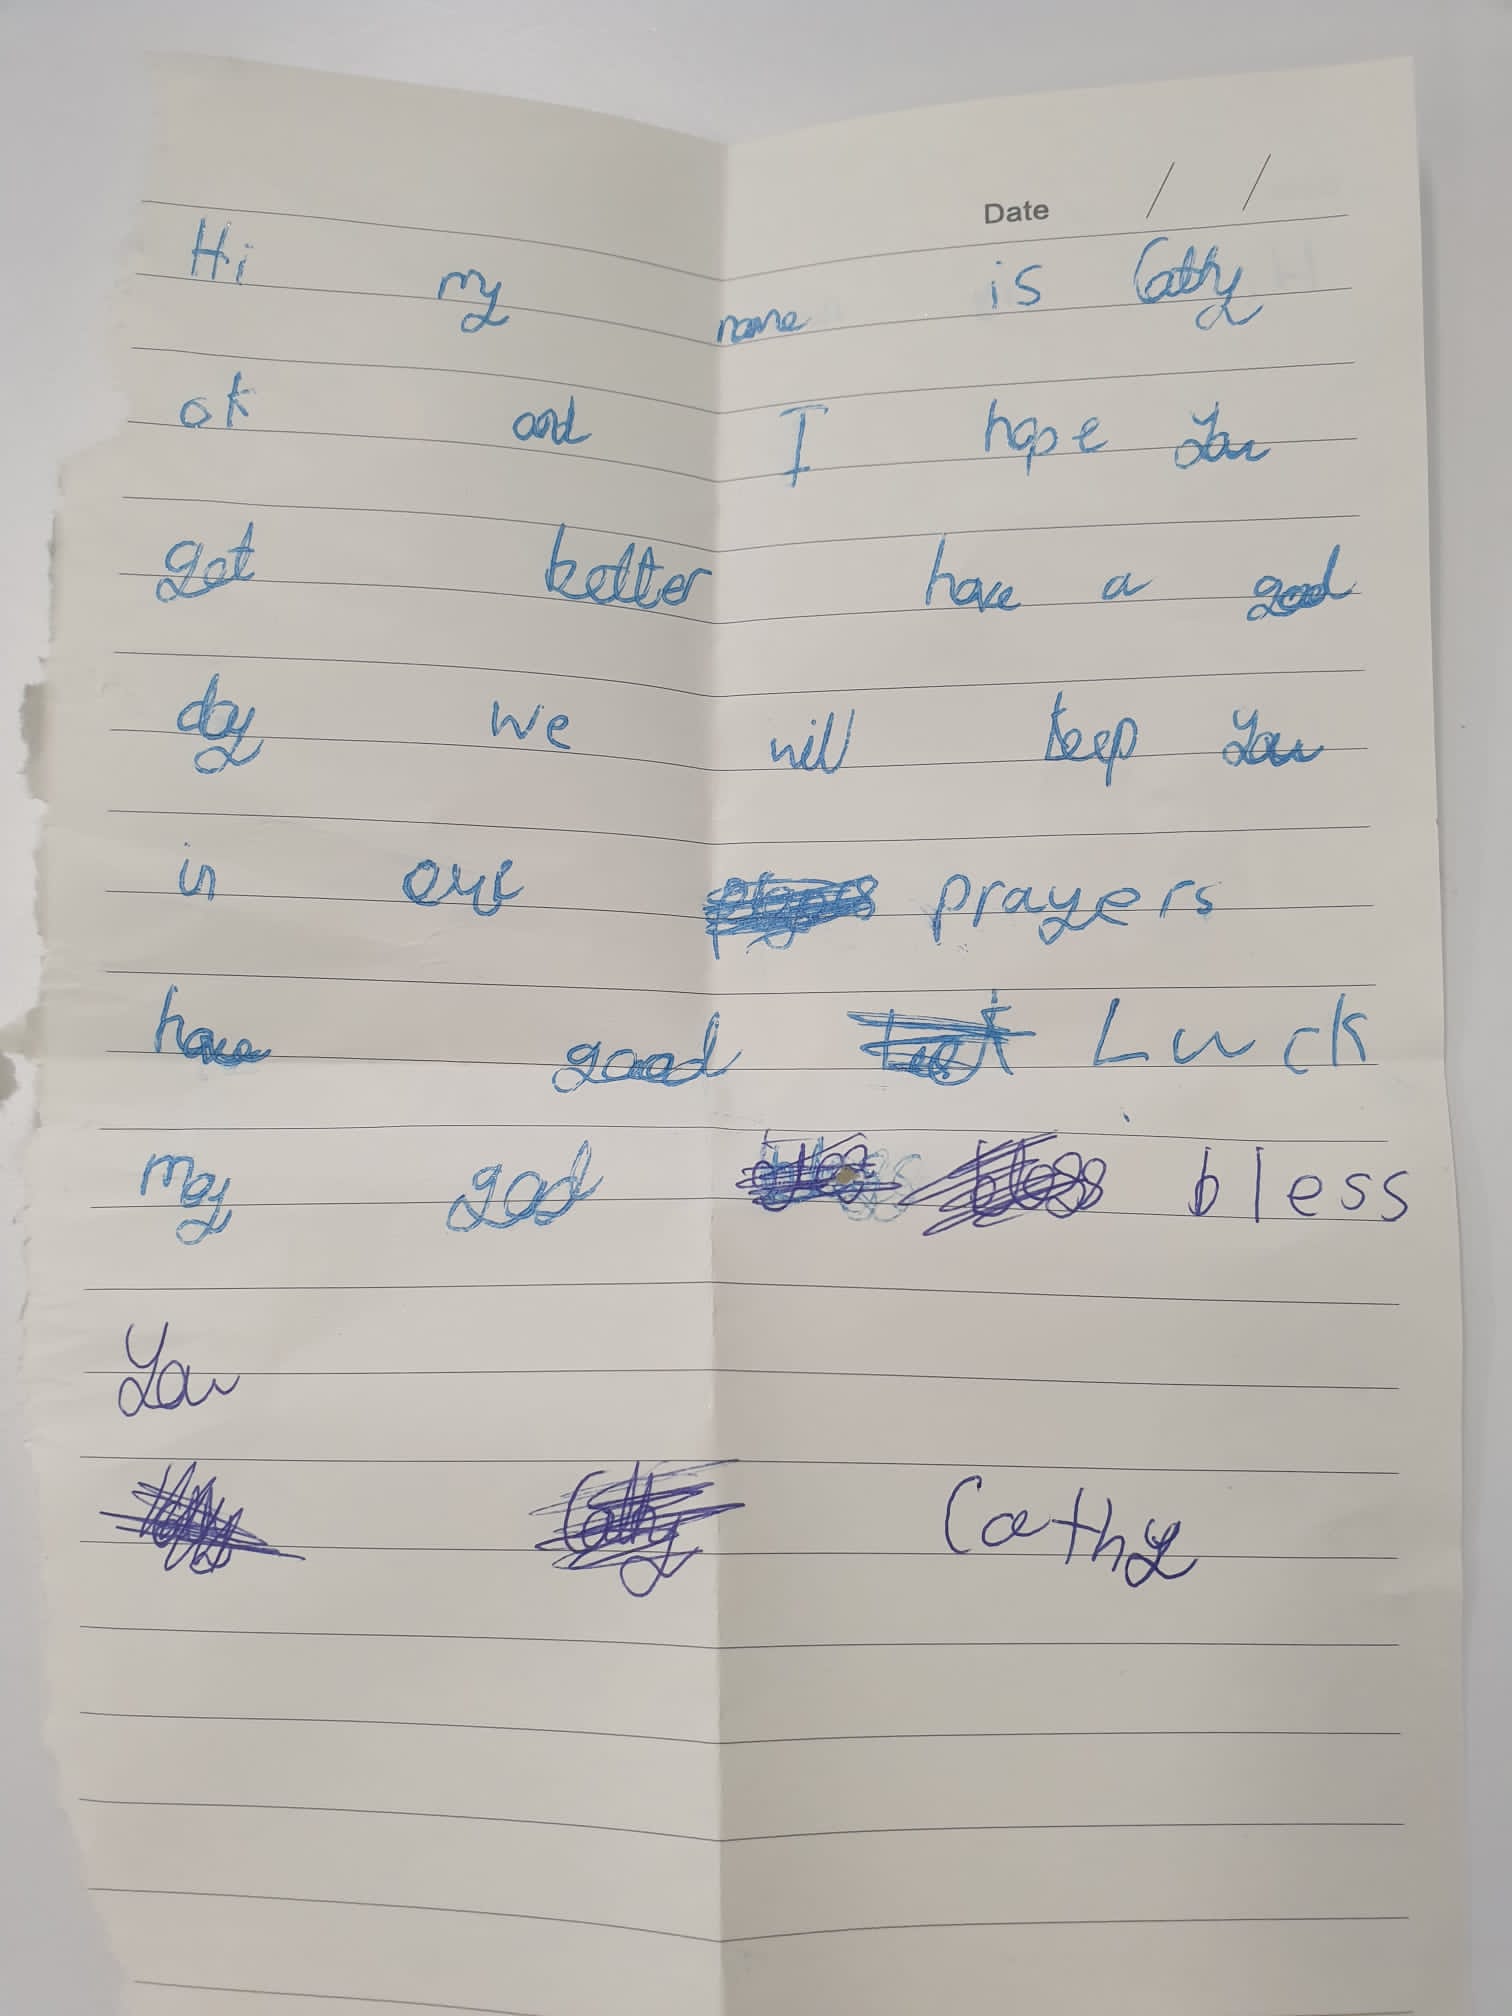 Date / /
Hi my name is Cathy
ok and I hope you
get better have a good
day we will keep you
in our prayers
have good Luck
may god bless
You
Cathy